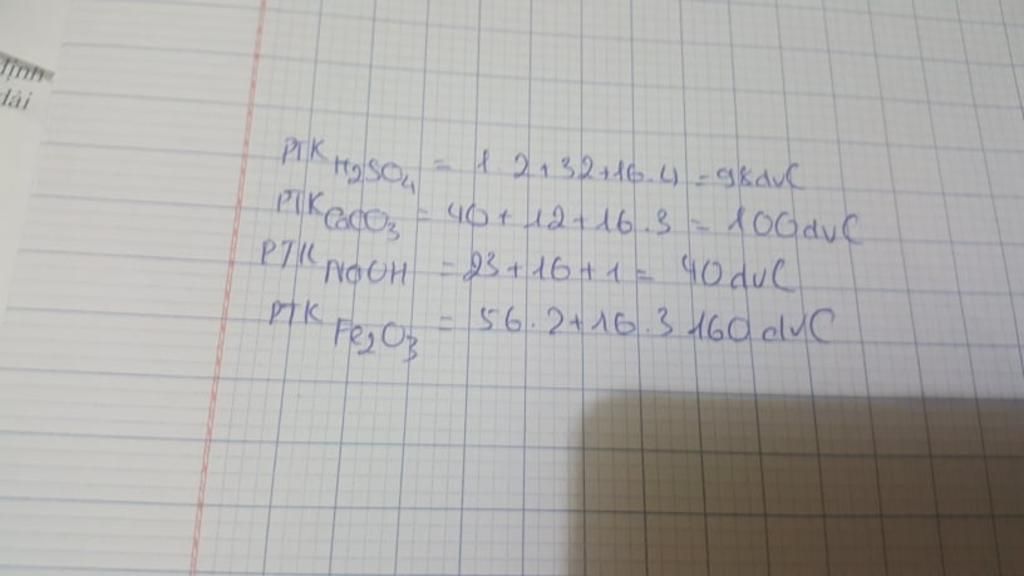 định
dài
PTK H2SO4 = 1.2+32+16.4 = 98dvC
PTK CaCO3 = 40+12+16.3 = 100dvC
PTK NaOH = 23+16+1 = 40dvC
PTK Fe2O3 = 56.2+16.3 160dvC